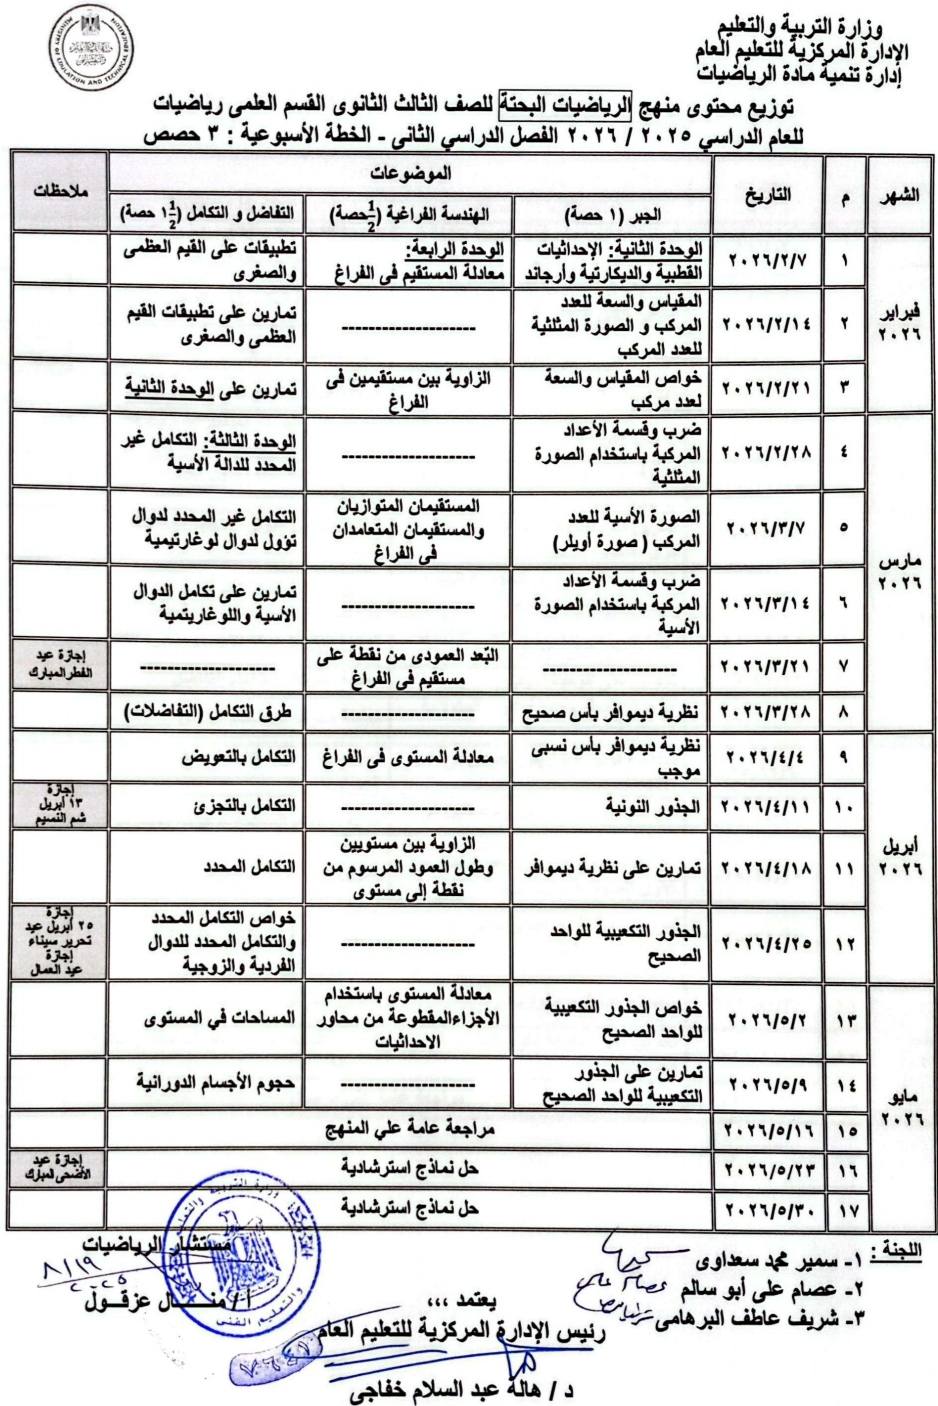 وزارة التربية والتعليم
الإدارة المركزية للتعليم العام
إدارة تنمية مادة الرياضيات
MINISTRY OF EDUCATION AND TECHNICAL EDUCATION
توزيع محتوى منهج الرياضيات البحتة للصف الثالث الثانوى القسم العلمى رياضيات
للعام الدراسي ٢٠٢٥ / ٢٠٢٦ الفصل الدراسي الثانى - الخطة الأسبوعية : ٣ حصص
الشهر
م
التاريخ
الموضوعات
ملاحظات
الجبر (١ حصة)
الهندسة الفراغية (١/٢ حصة)
التفاضل و التكامل (١ ١/٢ حصة)
فبراير
٢٠٢٦
١
٢٠٢٦/٢/٧
الوحدة الثانية: الإحداثيات
القطبية والديكارتية وأرجاند
الوحدة الرابعة:
معادلة المستقيم فى الفراغ
تطبيقات على القيم العظمى
والصغرى
٢
٢٠٢٦/٢/١٤
المقياس والسعة للعدد
المركب و الصورة المثلثية
للعدد المركب
--------------------
تمارين على تطبيقات القيم
العظمى والصغرى
٣
٢٠٢٦/٢/٢١
خواص المقياس والسعة
لعدد مركب
الزاوية بين مستقيمين فى
الفراغ
تمارين على الوحدة الثانية
مارس
٢٠٢٦
٤
٢٠٢٦/٢/٢٨
ضرب وقسمة الأعداد
المركبة باستخدام الصورة
المثلثية
--------------------
الوحدة الثالثة: التكامل غير
المحدد للدالة الأسية
٥
٢٠٢٦/٣/٧
الصورة الأسية للعدد
المركب ( صورة أويلر)
المستقيمان المتوازيان
والمستقيمان المتعامدان
فى الفراغ
التكامل غير المحدد لدوال
تؤول لدوال لوغارتيمية
٦
٢٠٢٦/٣/١٤
ضرب وقسمة الأعداد
المركبة باستخدام الصورة
الأسية
--------------------
تمارين على تكامل الدوال
الأسية واللوغاريتمية
٧
٢٠٢٦/٣/٢١
--------------------
البُعد العمودى من نقطة على
مستقيم فى الفراغ
--------------------
إجازة عيد
الفطر المبارك
٨
٢٠٢٦/٣/٢٨
نظرية ديموافر بأس صحيح
--------------------
طرق التكامل (التفاضلات)
أبريل
٢٠٢٦
٩
٢٠٢٦/٤/٤
نظرية ديموافر بأس نسبى
موجب
معادلة المستوى فى الفراغ
التكامل بالتعويض
١٠
٢٠٢٦/٤/١١
الجذور النونية
--------------------
التكامل بالتجزئ
إجازة
١٣ أبريل
شم النسيم
١١
٢٠٢٦/٤/١٨
تمارين على نظرية ديموافر
الزاوية بين مستويين
وطول العمود المرسوم من
نقطة إلى مستوى
التكامل المحدد
١٢
٢٠٢٦/٤/٢٥
الجذور التكعيبية للواحد
الصحيح
--------------------
خواص التكامل المحدد
والتكامل المحدد للدوال
الفردية والزوجية
إجازة
٢٥ أبريل عيد
تحرير سيناء
إجازة
عيد العمال
مايو
٢٠٢٦
١٣
٢٠٢٦/٥/٢
خواص الجذور التكعيبية
للواحد الصحيح
معادلة المستوى باستخدام
الأجزاءالمقطوعة من محاور
الاحداثيات
المساحات في المستوى
١٤
٢٠٢٦/٥/٩
تمارين على الجذور
التكعيبية للواحد الصحيح
--------------------
حجوم الأجسام الدورانية
١٥
٢٠٢٦/٥/١٦
مراجعة عامة علي المنهج
١٦
٢٠٢٦/٥/٢٣
حل نماذج استرشادية
إجازة عيد
الأضحى المبارك
١٧
٢٠٢٦/٥/٣٠
حل نماذج استرشادية
اللجنة :
١- سمير محمد سعداوى
٢- عصام على أبو سالم
٣- شريف عاطف البرهامى
مستشار الرياضيات
٨/١٩
٢٠٢٥
أ / منـــال عزقـــول
يعتمد ،،،
رئيس الإدارة المركزية للتعليم العام
د / هالة عبد السلام خفاجى